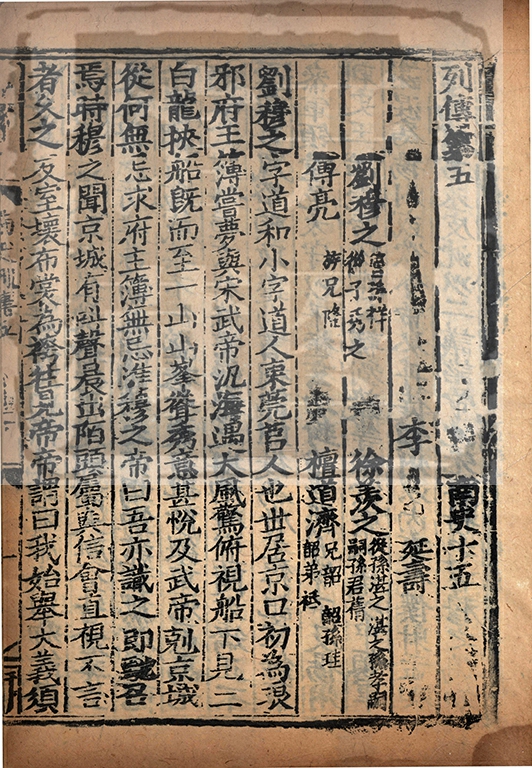 列傳第五 南史十五
李 延壽
劉穆之 曾孫祥 從子秀之 徐羨之 從孫湛之 湛之孫孝嗣 嗣孫君蒨
傅亮 族兄隆 檀道濟 兄韶 韶孫珪 韶弟祗
劉穆之字道和小字道人東莞莒人也世居京口初為琅
邪府主簿嘗夢與宋武帝汎海遇大風驚俯視船下見二
白龍挾船既而至一山山峯聳秀意甚悅及武帝剋京城
從何無忌求府主簿無忌進穆之帝曰吾亦識之即馳召
焉時穆之聞京城有叫聲晨出陌頭屬與信會直視不言
者久之反室壞布裳為袴往見帝帝謂曰我始舉大義須